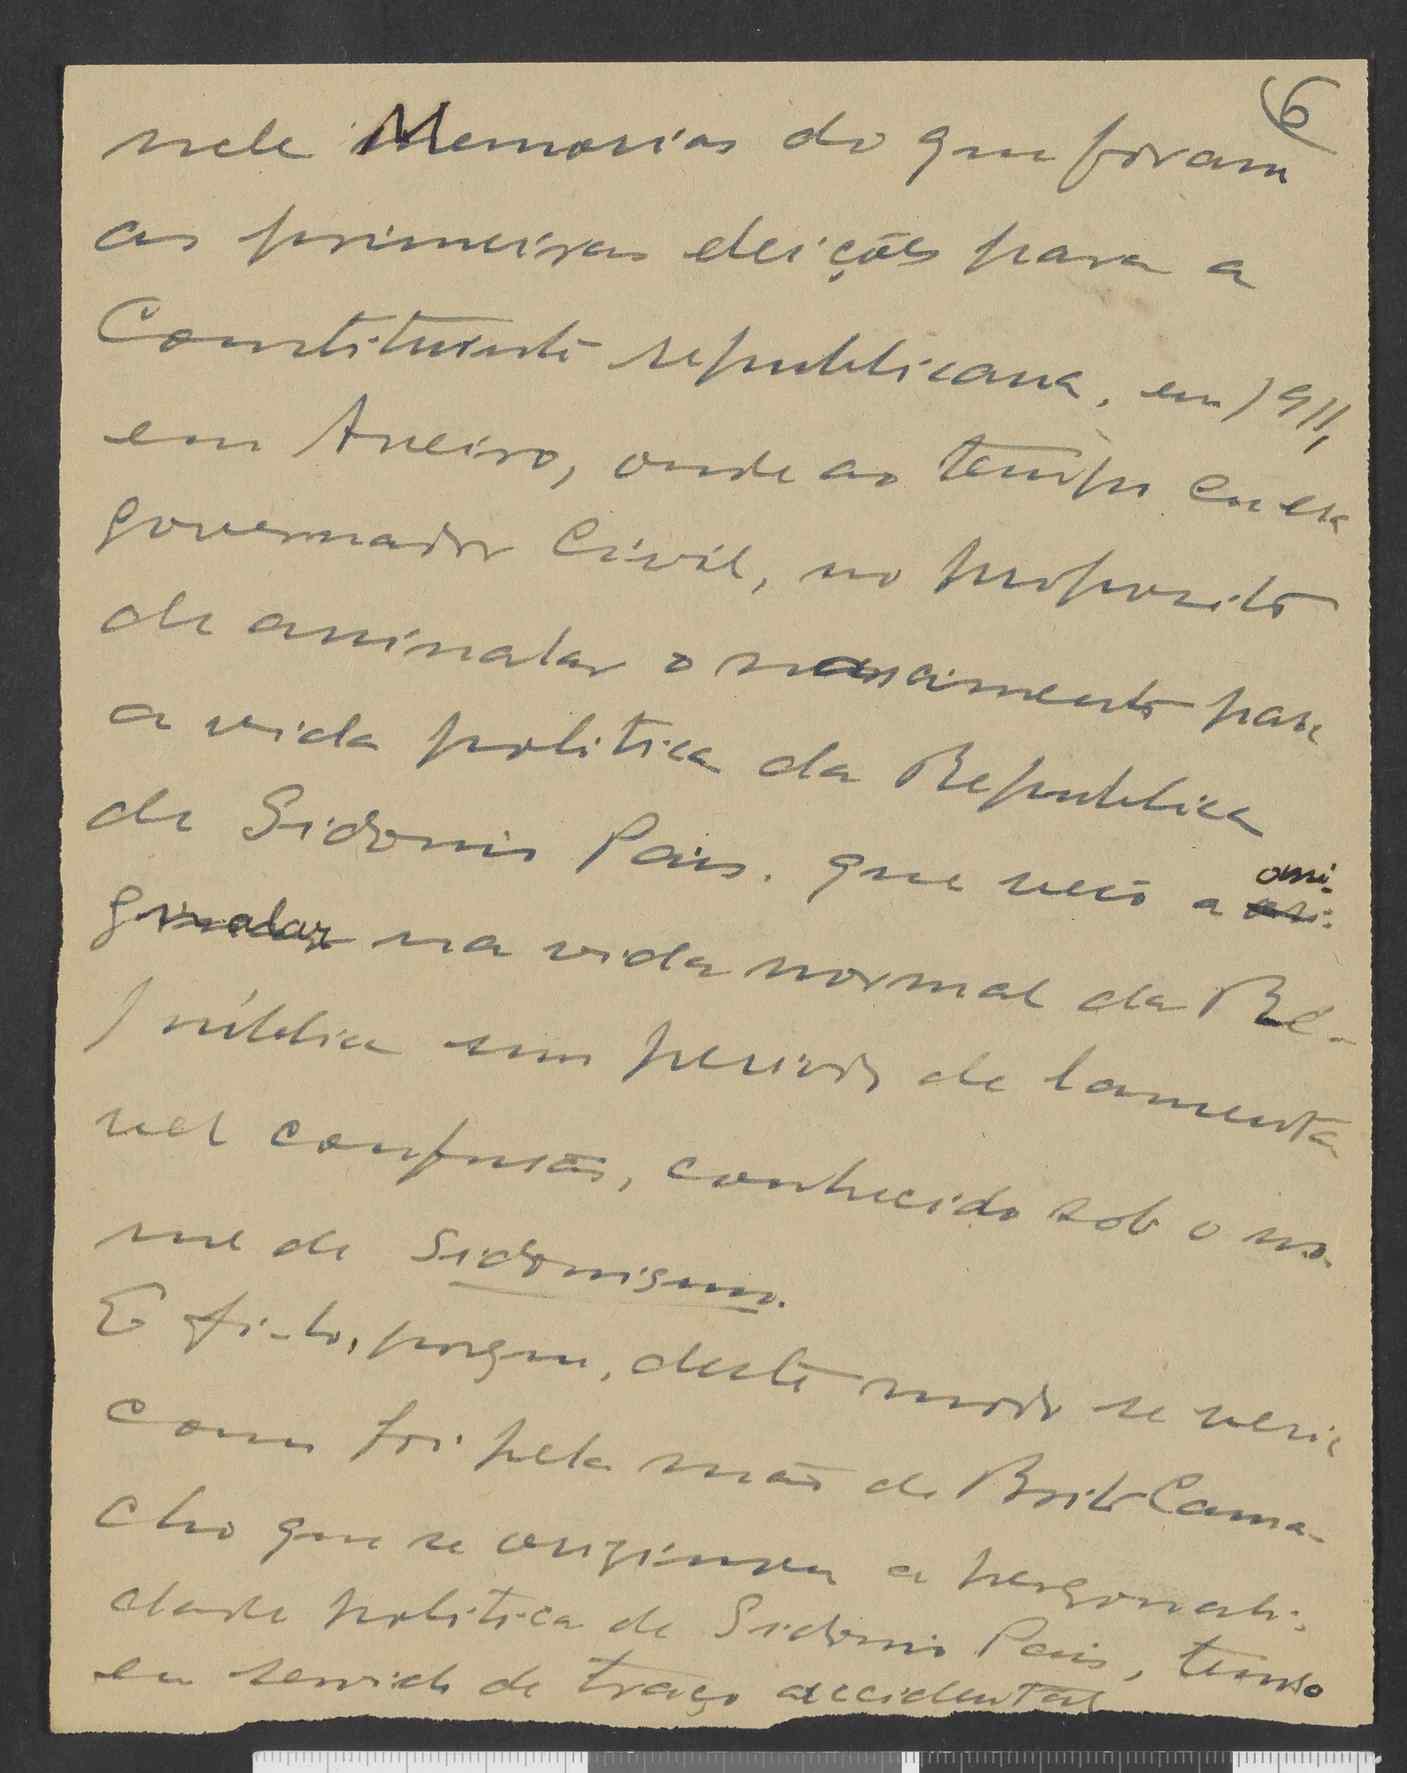 6
nele Memorias do que foram
as primeiras eleições para a
Constituinte republicana, em 1911,
em Aveiro, onde ao tempo eu era
governador Civil, no proposito
de assinalar o nascimento para
a vida politica da Republica
de Sidonio Pais. que veio a assi-
gnalar na vida normal da Ré-
pública um periodo de lamenta
vel confusão, conhecido sob o no-
me de Sidonismo.
E fi-lo, porque, deste modo se veria
como foi pela mão de Brito Cama-
cho que se originou a personali-
dade politica de Sidonio Pais, tendo
eu servido de traço accidental